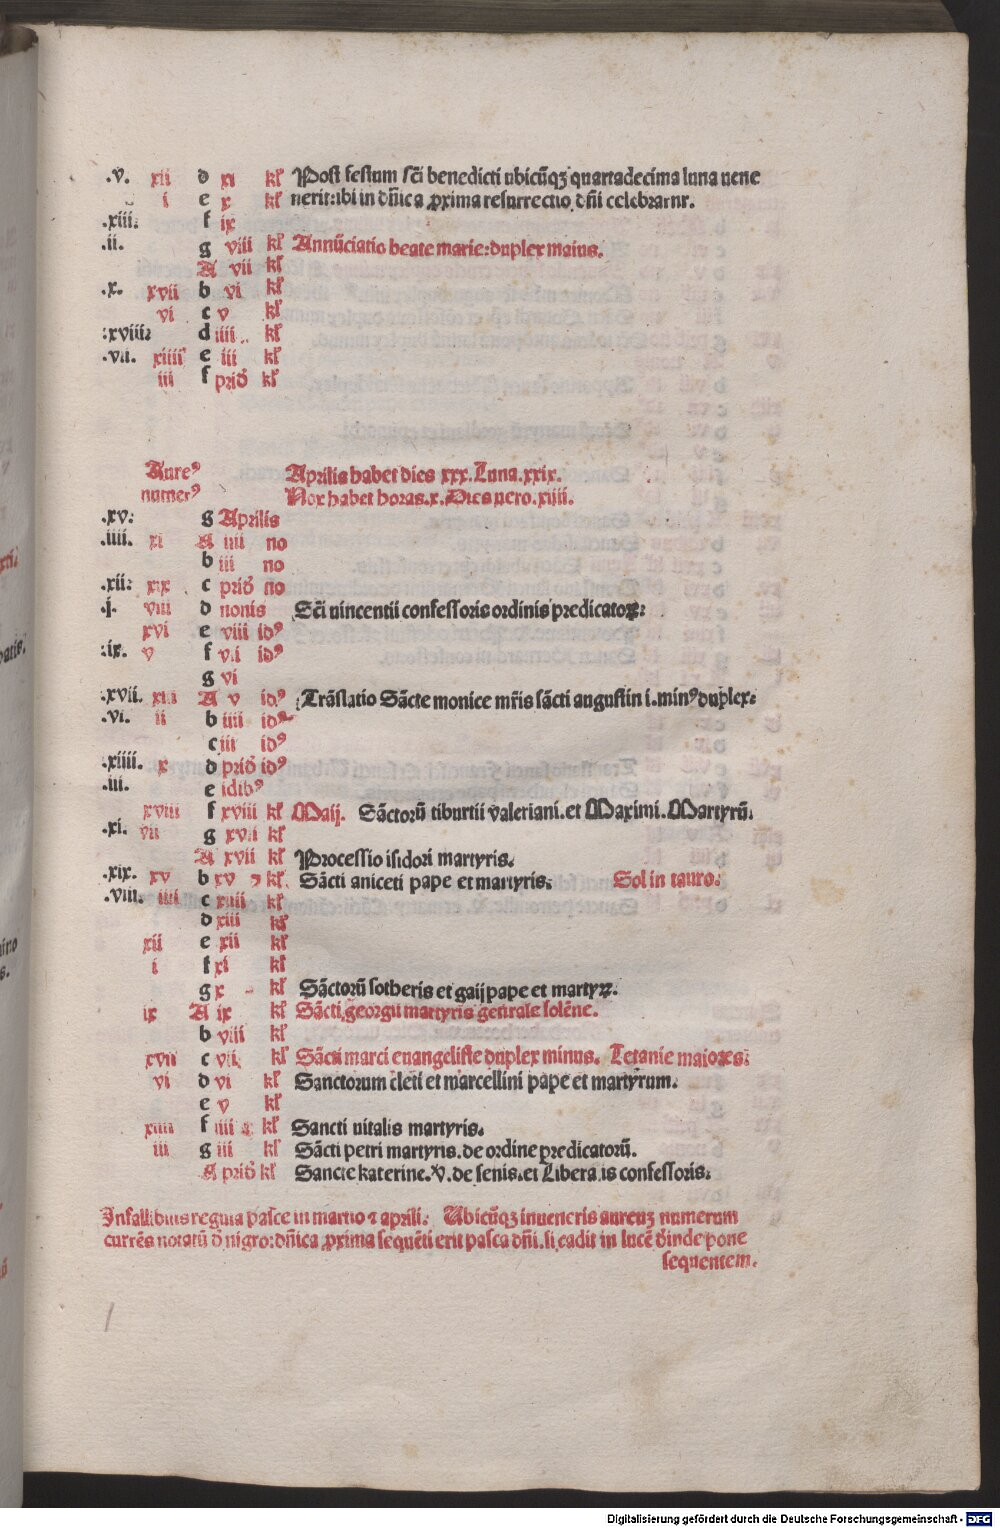 .v. xii d xi kl̕ Post festum sc̄i benedicti ubicūqꝫ quartadecima luna uene
i e x kl̕ nerit:ibi in dn̄ica ꝓxima resurrectio dn̄i celebratur.
.xiii: f ix
.ii. g viii kl̕ Annūciatio beate marie:duplex maius.
A vii kl̕
.x. xvii b vi kl̕
vi c v kl̕
:xviii: d iiii.. kl̕
.vii. xiiii e iii kl̕
iii f prid̕ kl̕
Aureꝰ Aprilis habet dies xxx.Luna.xxix.
numerꝰ Nox habet horas.x.Dies uero.xiiii.
.xv: g Aprilis
.iiii. xi A iiii no
b iii no
.xii: xix c prid̕ no
.j. viii d nonis Sc̄i uincentii confessoris ordinis predicatoꝝ:
xvi e viii idꝰ
:ix. v f vii idꝰ
g vi
.xvii. xiii A v idꝰ Trāslatio Sācte monice mr̄is sācti augustin i.minꝰ duplex:
.vi. ii b iiii idꝰ
c iii idꝰ
.xiiii. x d prid̕ idꝰ
.iii. e idibꝰ
xviii f xviii kl̕ Maij. Sāctorū tiburtii valeriani.et Maximi.Martyrū.
.xi. vii g xvii kl̕
A xvii kl̕ Processio isidori martyris.
.xix. xv b xv kl̕ Sācti aniceti pape et martyris. Sol in tauro.
.viii. iiii c xiiii kl̕
d xiii kl̕
xii e xii kl̕
i f xi kl̕
g x kl̕ Sāctorū sotheris et gaij pape et martyꝝ.
ix A ix kl̕ Sācti georgii martyris gen̄rale solēne.
b viii kl̕
xvii c vii kl̕ Sācti marci euangeliste duplex minus. Letanie maiores:
vi d vi kl̕ Sanctorum cleti et marcellini pape et martyrum.
e v kl̕
xiiii f iiii kl̕ Sancti uitalis martyris.
iii g iii kl̕ Sācti petri martyris.de ordine predicatorū.
A prid̕ kl̕ Sancte katerine.V.de senis.et Libera.is confessoris.
Infallibilis regula pasce in martio ⁊ aprili. Ubicūqꝫ inueneris aureuꝫ numerum
currēs notatū d̕ nigro:dn̄ica ꝓxima sequēti erit pasca dn̄i.si cadit in lucē d̕inde pone
sequentem.
Digitalisierung gefördert durch die Deutsche Forschungsgemeinschaft - DFG